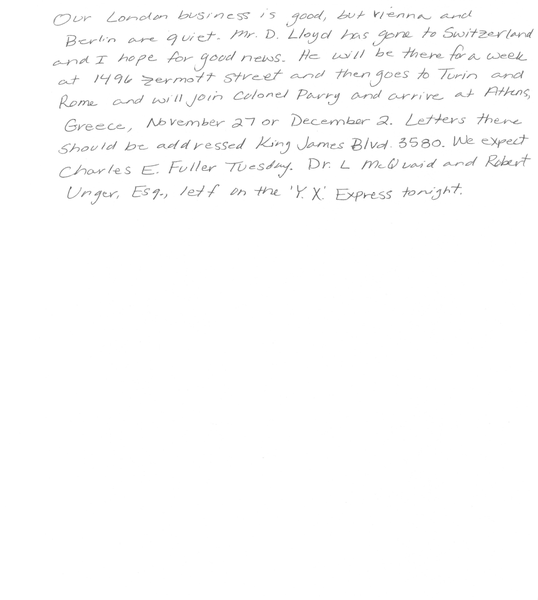 Our London business is good, but Vienna and
Berlin are quiet. Mr. D. Lloyd has gone to Switzerland
and I hope for good news. He will be there for a week
at 1496 Zermott Street and then goes to Turin and
Rome and will join Colonel Parry and arrive at Athens,
Greece, November 27 or December 2. Letters there
should be addressed King James Blvd. 3580. We expect
Charles E. Fuller Tuesday. Dr. L McQuaid and Robert
Unger, Esq., letf on the 'Y. X.' Express tonight.